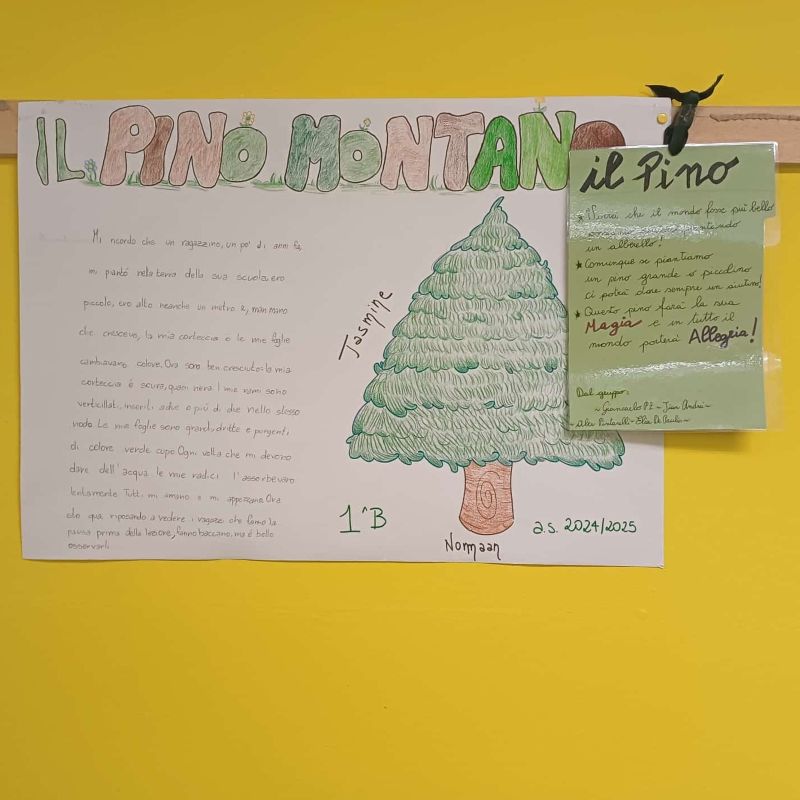 IL PINO MONTANO
Mi ricordo che un ragazzino, un po' di anni fa,
mi piantò nella terra della sua scuola, ero
piccolo, ero alto neanche un metro e, man mano
che crescevo, la mia corteccia e le mie foglie
cambiavano colore. Ora sono ben cresciuto: la mia
corteccia è scura, quasi nera. I miei rami sono
verticillati, inseriti a due o più di due nello stesso
nodo. Le mie foglie sono grandi, dritte e pungenti
di colore verde cupo. Ogni volta che mi devono
dare dell'acqua le mie radici l'assorbevano
lentamente. Tutti mi amano e mi apprezzano. Ora
sto qua riposando a vedere i ragazzi che fanno la
pausa prima della lezione, fanno baccano, ma è bello
osservarli
Jasmine
1^B
a.s. 2024/2025
Normaan
il Pino
★ Vorrei che il mondo fosse più bello
piantando
un alberello!
★ Comunque se piantiamo
un pino grande o piccolino
ci potrà dare sempre un aiutino!
★ Questo pino farà la sua
Magia e in tutto il
mondo porterà Allegria!
Dal gruppo:
~ Giancarlo PZ ~ Juan Andrei ~
~ Alex Pintarelli ~ Elia De Paulis ~